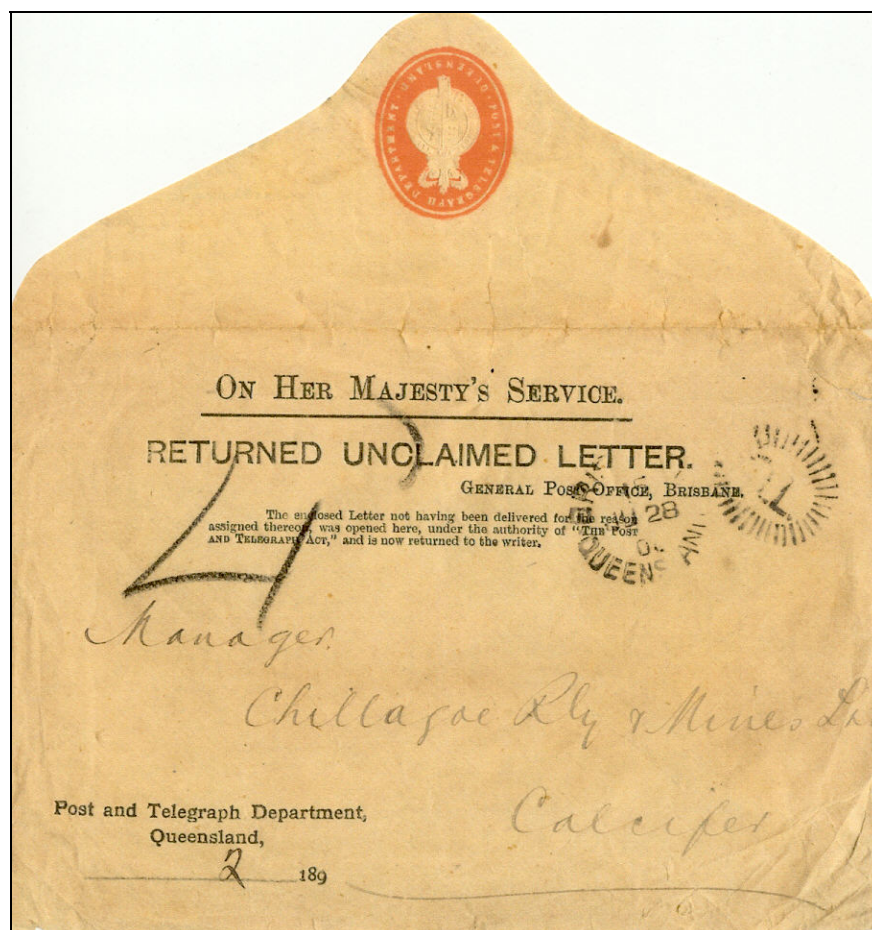 QUEENSLAND · POST & TELEGRAPH DEPARTMENT
ON HER MAJESTY'S SERVICE.
RETURNED UNCLAIMED LETTER.
GENERAL POST OFFICE, BRISBANE.
The enclosed Letter not having been delivered for the reason
assigned thereon, was opened here, under the authority of "THE POST
AND TELEGRAPH ACT," and is now returned to the writer.
28
QUEENS
4
Manager.
Chillagoe Rly & Mines
Calcifer
Post and Telegraph Department,
Queensland,
2 189